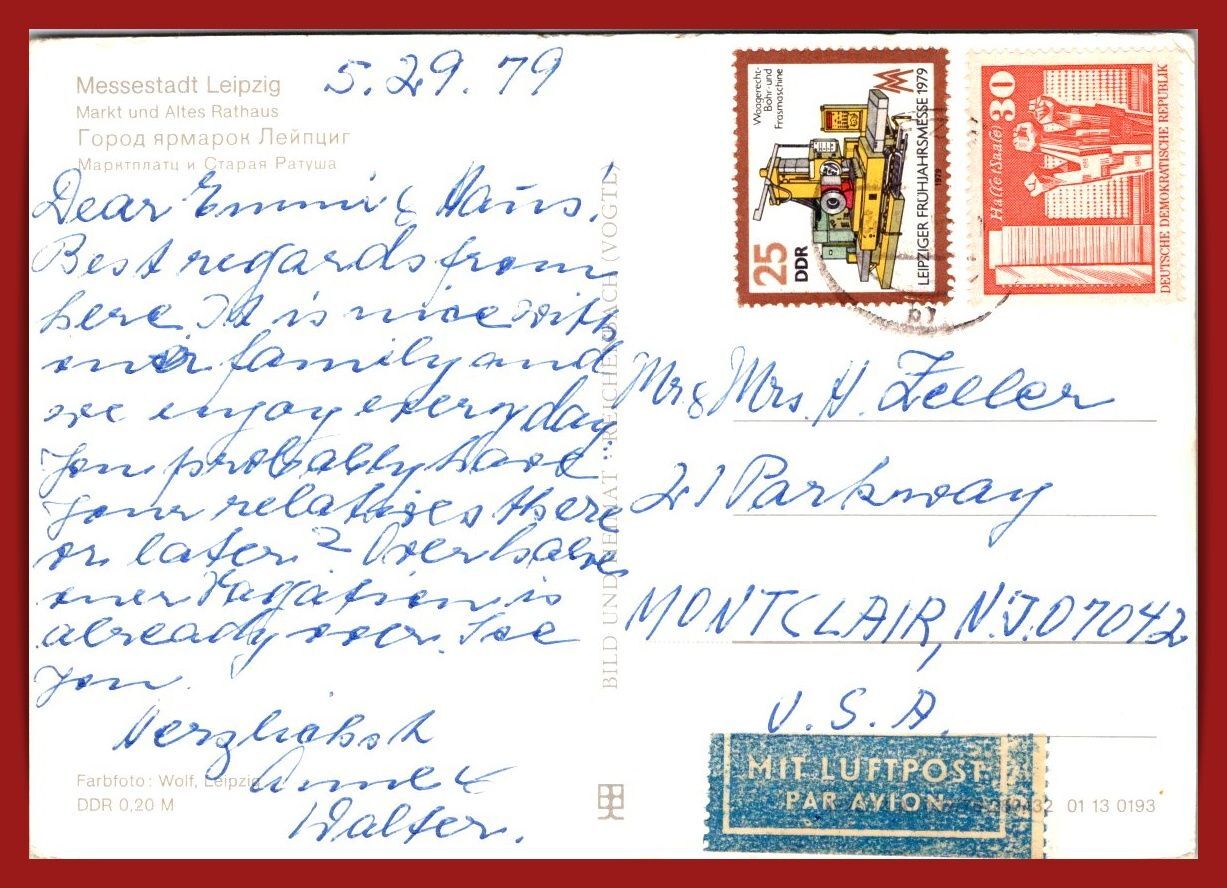 Messestadt Leipzig
Markt und Altes Rathaus
Город ярмарок Лейпциг
Марктплатц и Старая Ратуша
5.29.79
Dear Emmi & Hans.
Best regards from
here. It is nice with
our family and
we enjoy every day
You probably have
your relatives there
or later? Over
over is
already over. See
you.
Herzlichst
Anne &
Walter.
Farbfoto: Wolf, Leipzig
DDR 0,20 M
BILD UND HEIMAT REICHENBACH (VOGTL)
Waagerecht-
Bohr- und
Fräsmaschine
25
DDR
LEIPZIGER FRÜHJAHRSMESSE 1979
1979
30
Halle (Saale)
DEUTSCHE DEMOKRATISCHE REPUBLIK
Mr & Mrs. H. Zeller
21 Parkway
MONTCLAIR, N.J. 07042
U.S.A.
MIT LUFTPOST
PAR AVION
01 13 0193